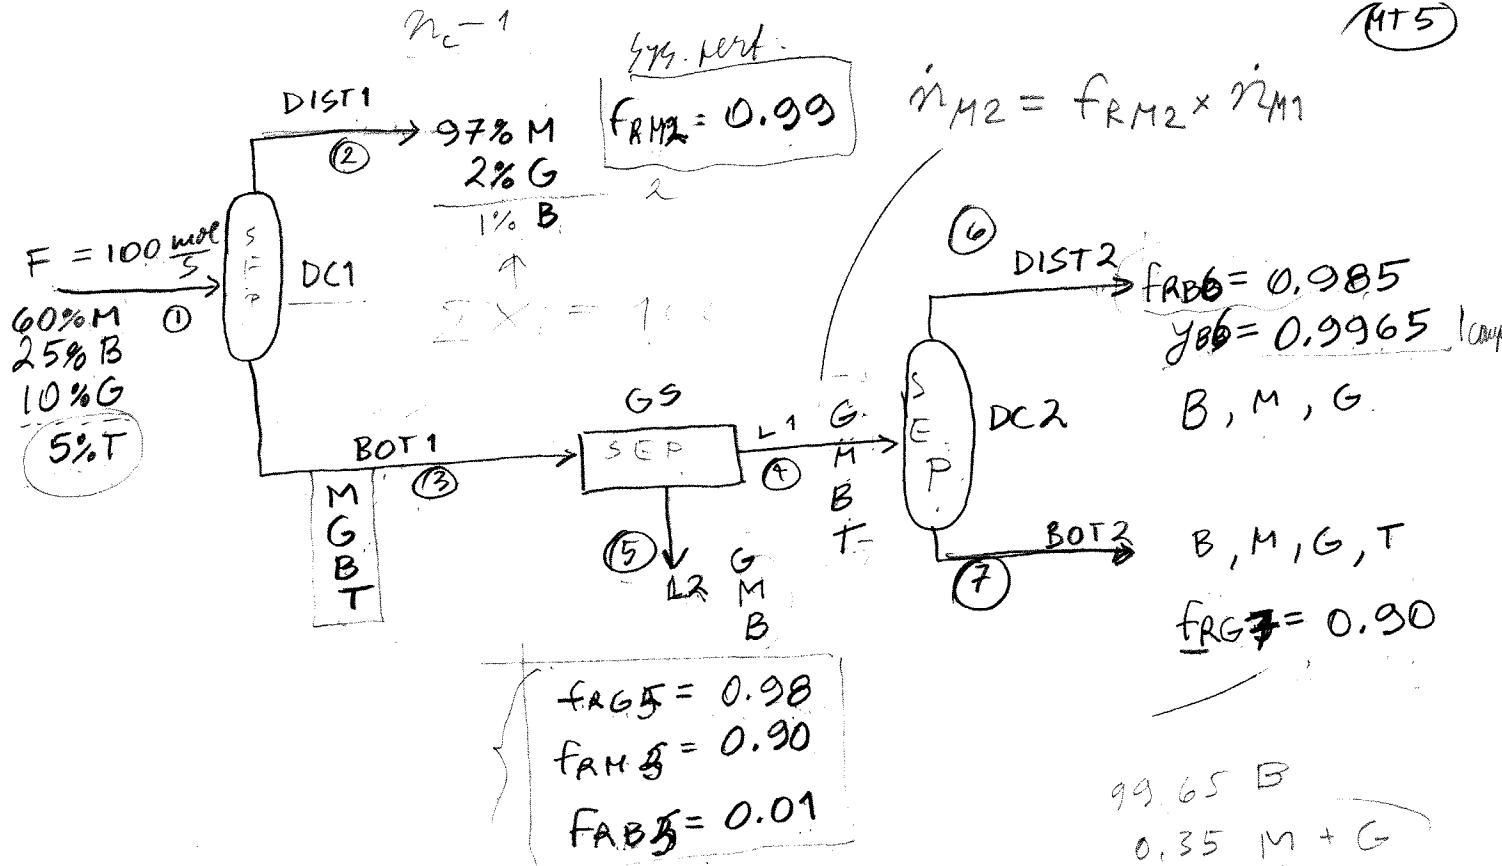 n_c - 1
MT5
Sys. pert.
f_RM2 = 0.99
2
ṅ_M2 = f_RM2 × ṅ_M1
DIST1
②
97% M
2% G
1% B
↑
F = 100 mol/s
①
60% M
25% B
10% G
5% T
SEP
DC1
Σ X = 1
BOT1
③
M
G
B
T
GS
SEP
L1
④
G
M
B
T
⑤
L2
G
M
B
f_RG5 = 0.98
f_RM5 = 0.90
f_RB5 = 0.01
SEP
DC2
⑥
DIST2
f_RB6 = 0.985
y_B6 = 0.9965
B, M, G
BOT2
⑦
B, M, G, T
f_RG7 = 0.90
99.65 B
0.35 M + G